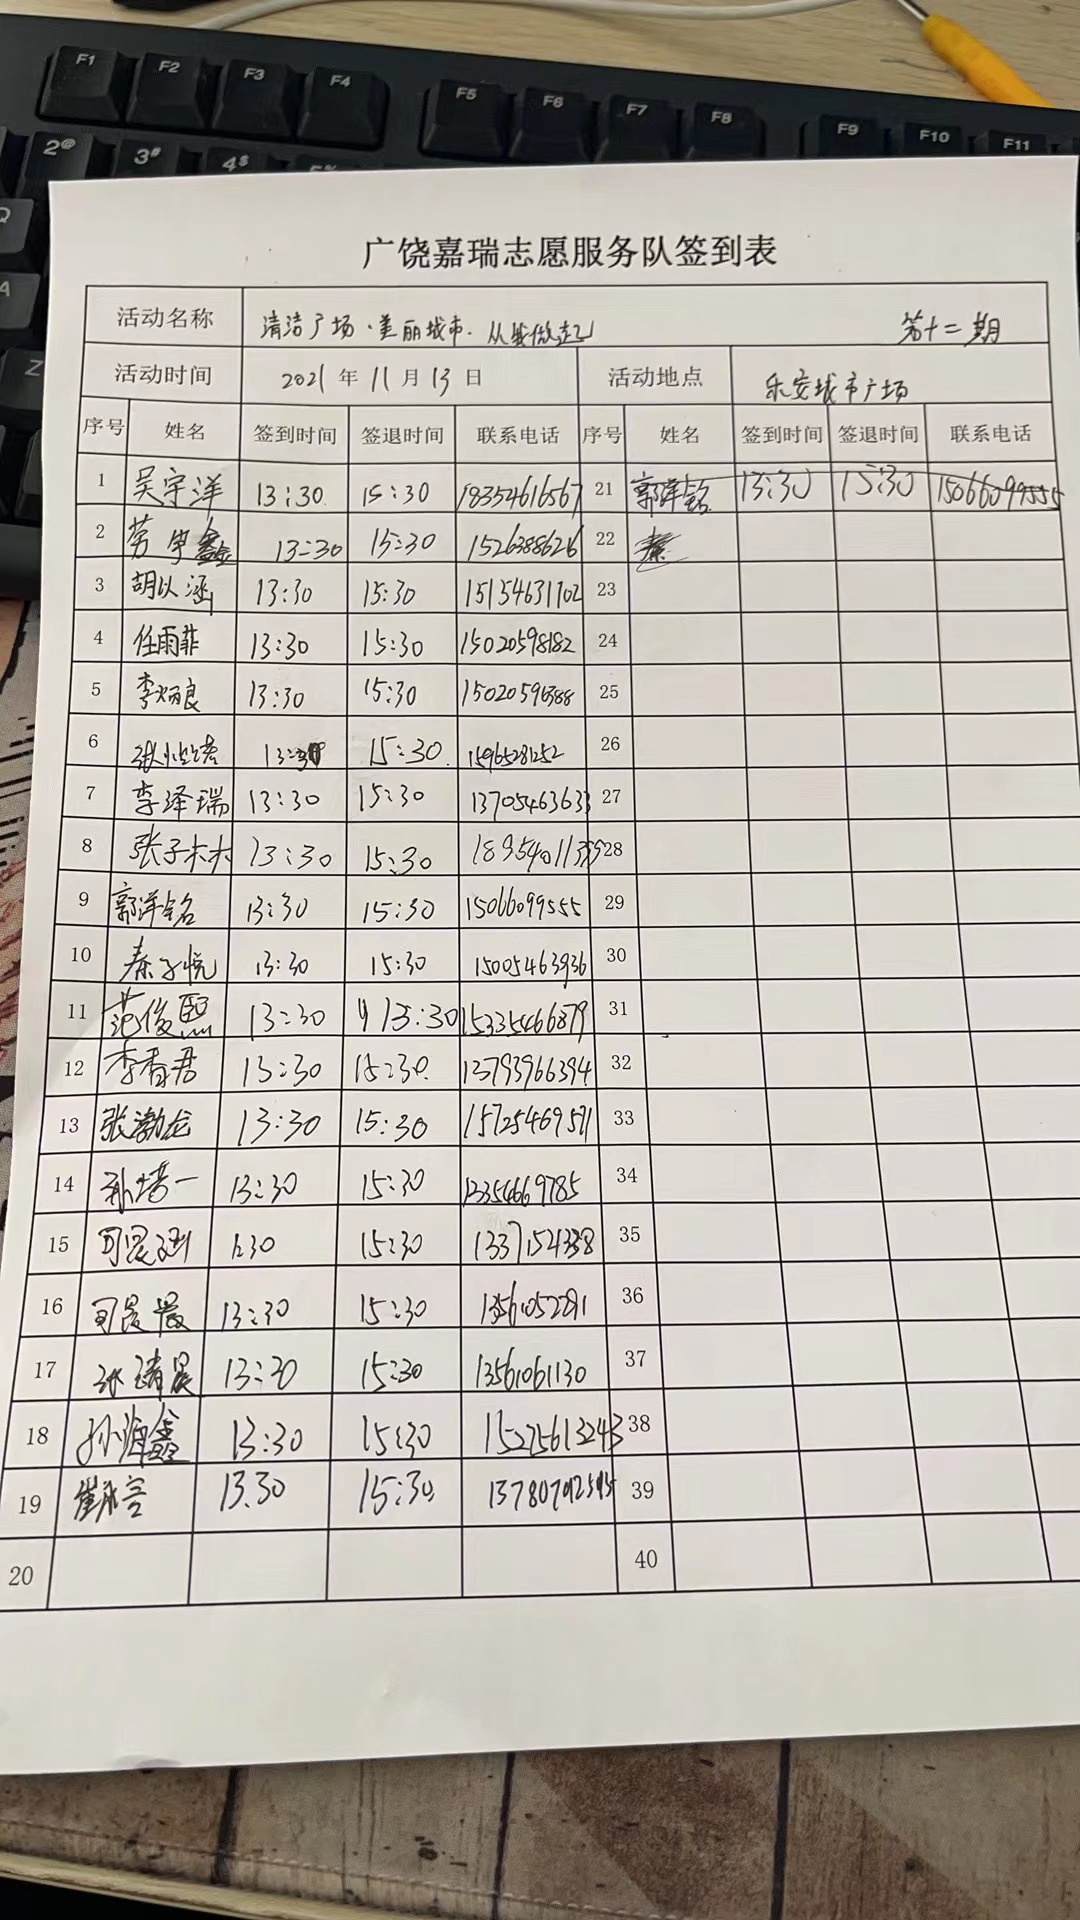 F1 F2 F3 F4 F5 F6 F7 F8 F9 F10 F11
2@ 3# 4$ 5%
Q
A
Z
广饶嘉瑞志愿服务队签到表
活动名称 清洁广场·美丽城市·从我做起 第十二期
活动时间 2021 年 11 月 13 日 活动地点 乐安城市广场
序号 姓名 签到时间 签退时间 联系电话 序号 姓名 签到时间 签退时间 联系电话
1 吴宇洋 13:30 15:30 18354616567 21 郭洋铭 13:30 15:30 15066099555
2 13:30 15:30 1526388626 22
3 胡以涵 13:30 15:30 15154631702 23
4 任雨菲 13:30 15:30 15020598182 24
5 李炳良 13:30 15:30 25
6 15:30 15965281252 26
7 李泽瑞 13:30 15:30 13705463633 27
8 张子木木 13:30 15:30 28
9 郭洋铭 13:30 15:30 15066099555 29
10 秦子悦 13:30 15:30 15005463936 30
11 范俊熙 13:30 13:30 15335466879 31
12 李春君 13:30 15:30 13793966394 32
13 张渤龙 13:30 15:30 33
14 孙培一 13:30 15:30 13354669785 34
15 1:30 15:30 35
16 13:30 15:30 36
17 13:30 15:30 13561061130 37
18 孙海鑫 13:30 15:30 15275613243 38
19 崔永言 13.30 15:30 39
20 40